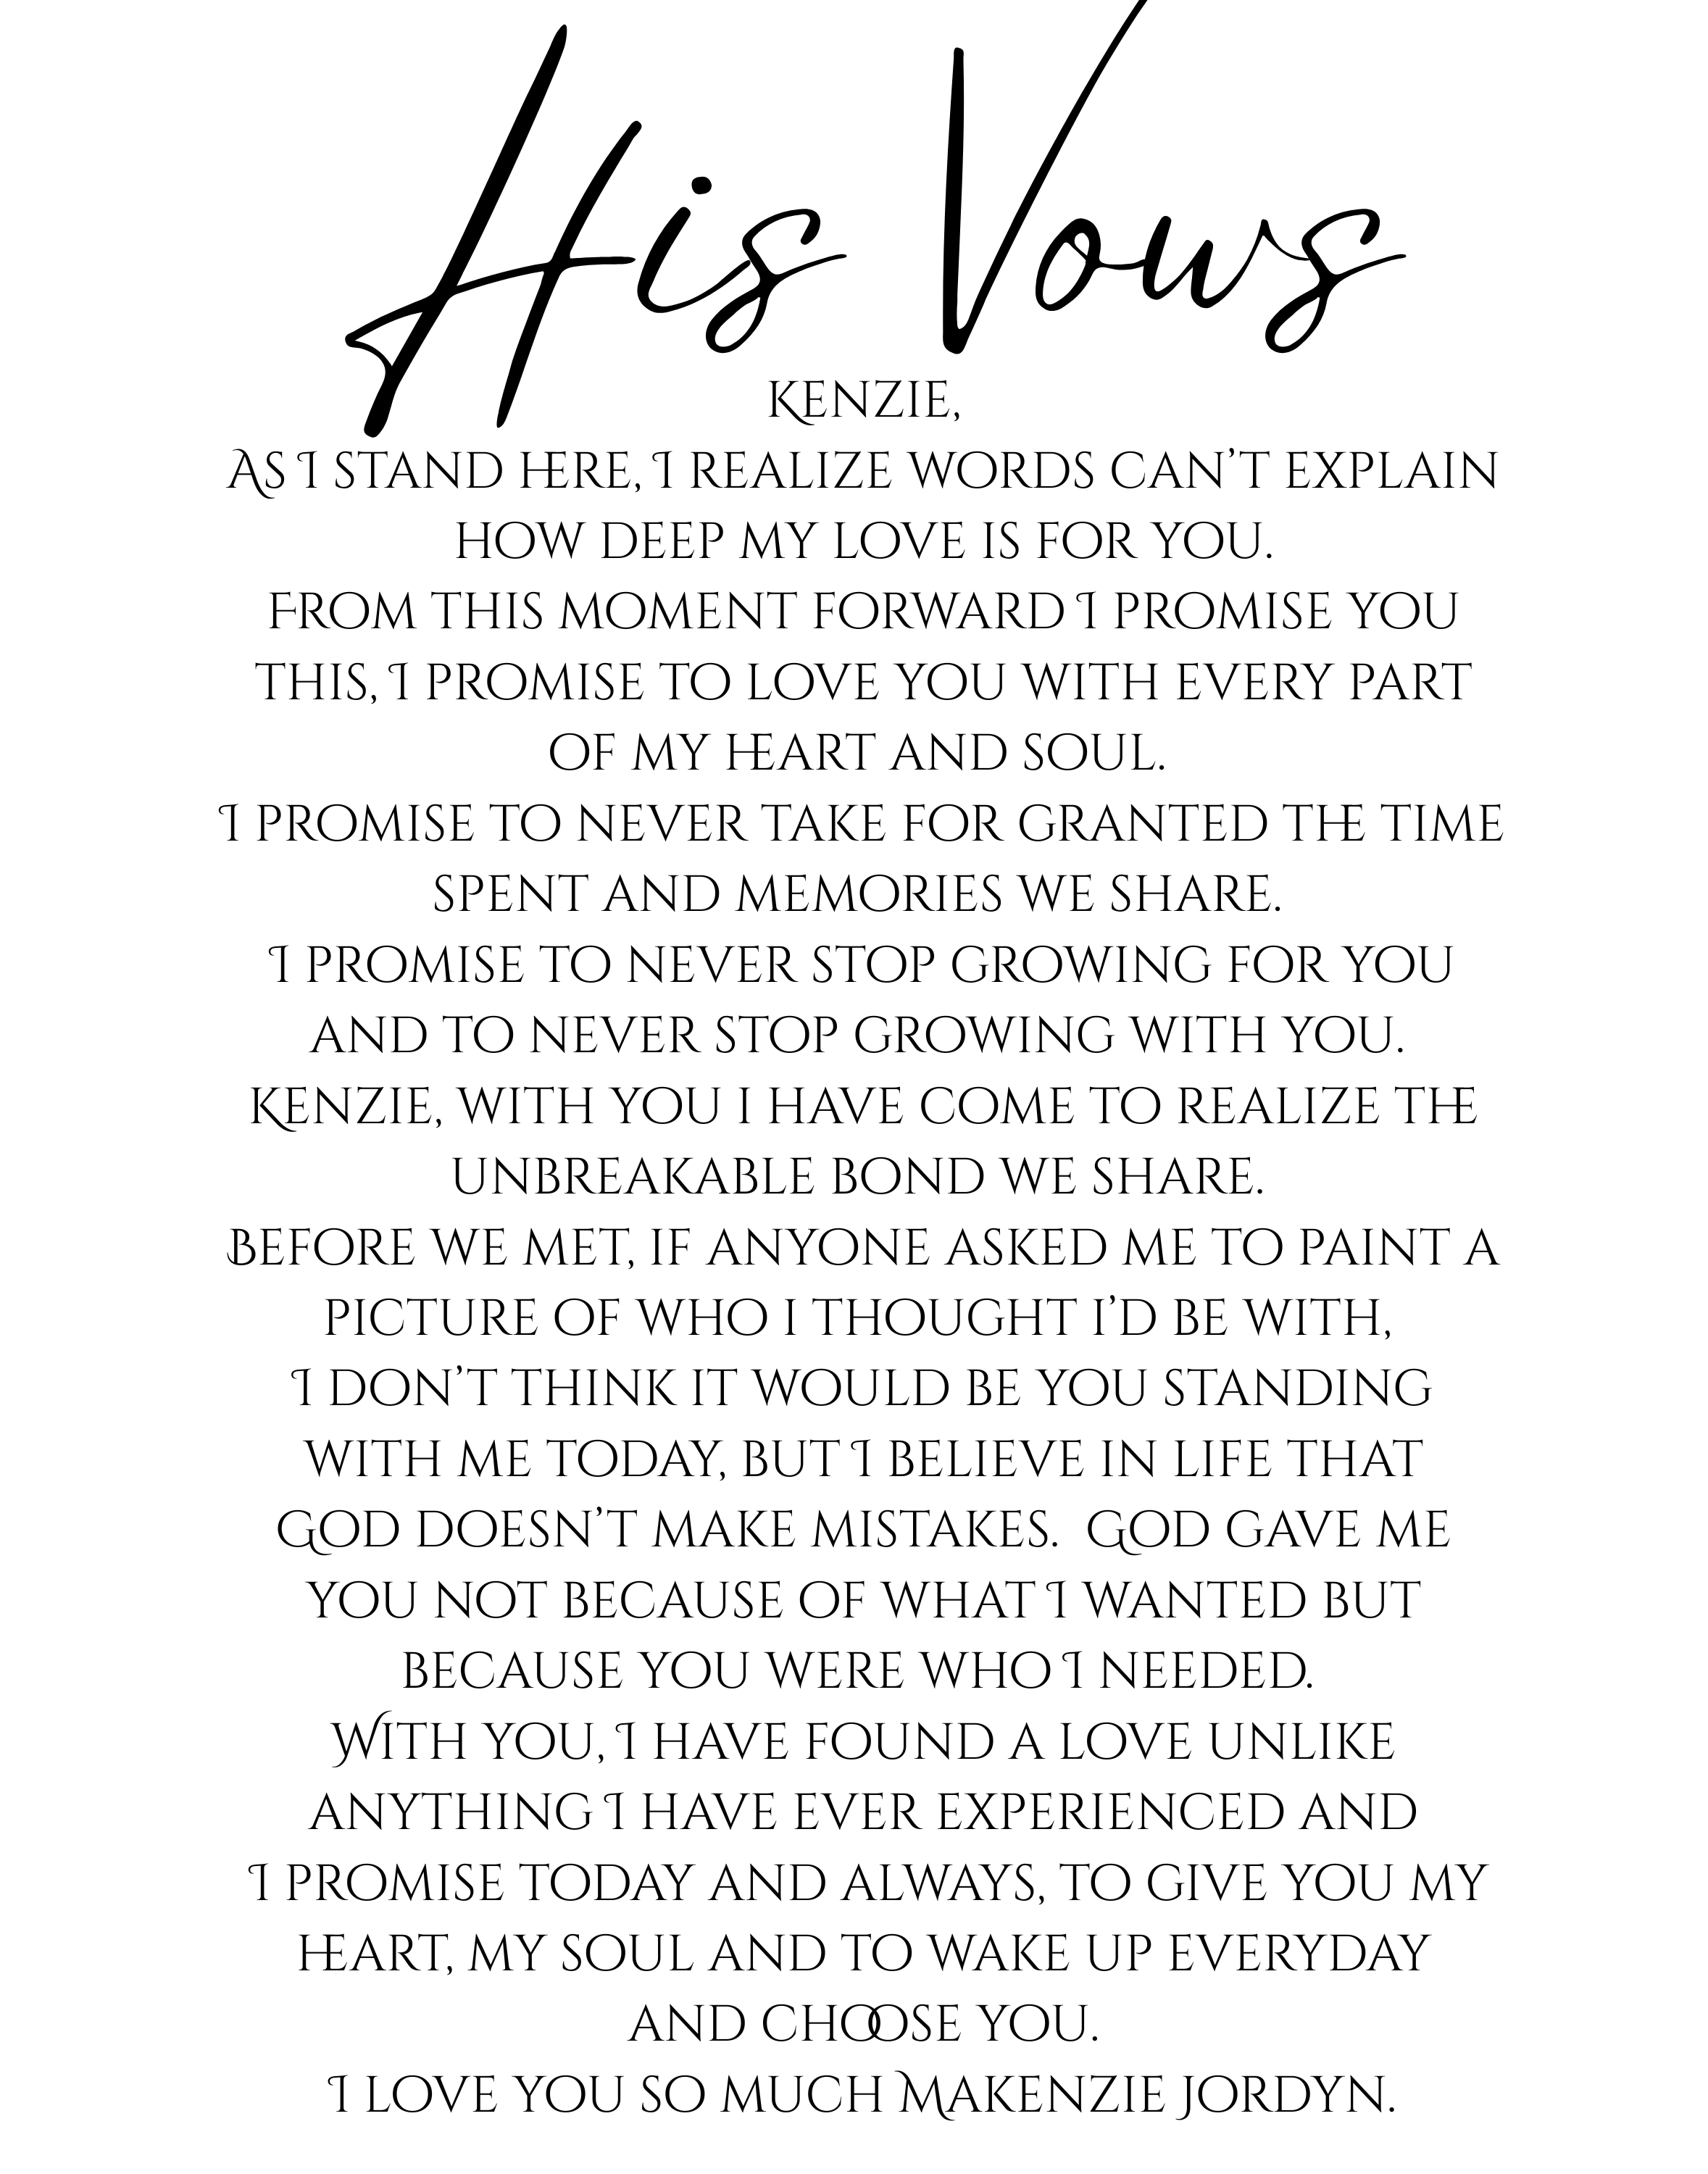 His Vows
Kenzie,
As I stand here, I realize words can’t explain
how deep my love is for you.
From this moment forward I promise you
this, I promise to love you with every part
of my heart and soul.
I promise to never take for granted the time
spent and memories we share.
I promise to never stop growing for you
and to never stop growing with you.
Kenzie, with you i have come to realize the
unbreakable bond we share.
Before we met, if anyone asked me to paint a
picture of who i thought i’d be with,
I don’t think it would be you standing
with me today, but I believe in life that
God doesn’t make mistakes.  God gave me
you not because of what I wanted but
because you were who I needed.
With you, I have found a love unlike
anything I have ever experienced and
I promise today and always, to give you my
heart, my soul and to wake up everyday
and choose you.
I love you so much Makenzie Jordyn.